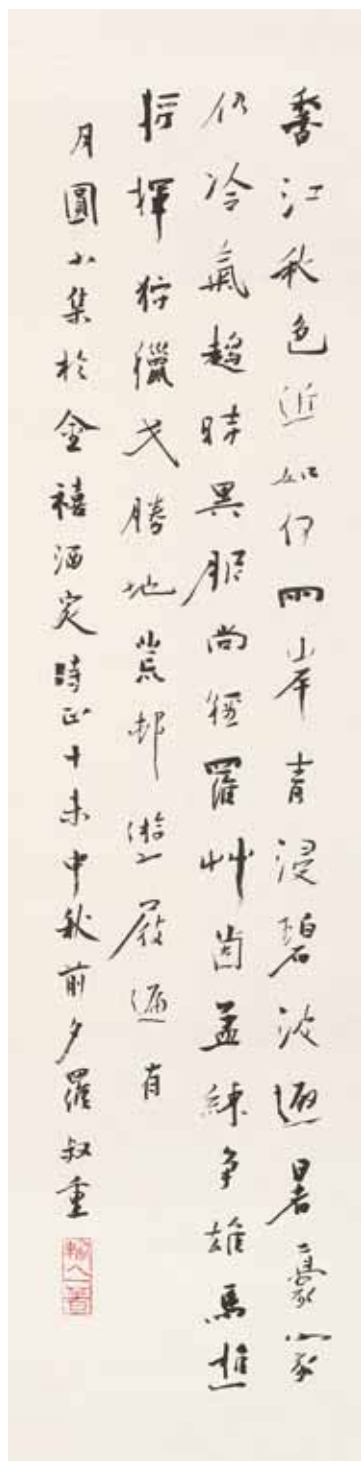 香江秋色近如何兩岸青浸碧波避暑豪家
仍冷氣趨時異服尚輕羅艸茵練爭雄馬
揮狩獵戈勝地荒邨遊屐遍有
月圓小集於金禧酒家時正丁未中秋前夕羅叔重